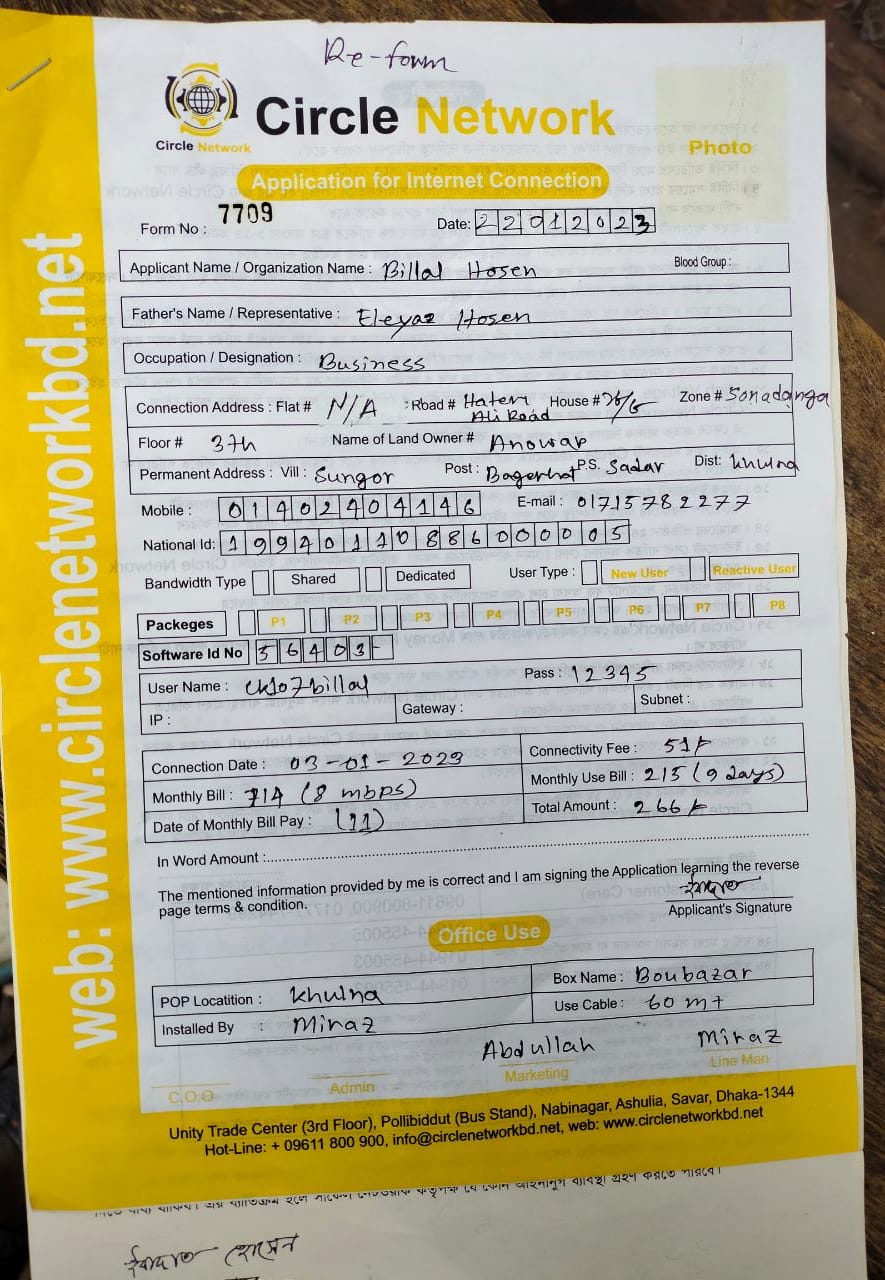 Re-form
Circle Network
Circle Network
Photo
Application for Internet Connection
Form No : 7709
Date: 22012023
Applicant Name / Organization Name : Billal Hosen Blood Group :
Father's Name / Representative : Eleyaz Hosen
Occupation / Designation : Business
Connection Address : Flat # N/A : Road # Hatem Ali Road House # Zone # Sonadanga
Floor # 3th Name of Land Owner # Anowar
Permanent Address : Vill : Sungor Post : Bagerhat P.S. Sadar Dist: Khulna
Mobile : 01402404146 E-mail : 01715782277
National Id: 19940110886000005
Bandwidth Type Shared Dedicated User Type : New User Reactive User
Packeges P1 P2 P3 P4 P5 P6 P7 P8
Software Id No 56403
User Name : ck107billal Pass : 12345
IP : Gateway : Subnet :
Connection Date : 03-01-2023 Connectivity Fee : 51/-
Monthly Bill : 714 (8 mbps) Monthly Use Bill : 215 (9 days)
Date of Monthly Bill Pay : (11) Total Amount : 266/-
In Word Amount :
The mentioned information provided by me is correct and I am signing the Application learning the reverse
page terms & condition.
Applicant's Signature
Office Use
POP Locatition : Khulna Box Name : Boubazar
Installed By : Miraz Use Cable : 60 mt
Abdullah Miraz
C.O.O Admin Marketing Line Man
Unity Trade Center (3rd Floor), Pollibiddut (Bus Stand), Nabinagar, Ashulia, Savar, Dhaka-1344
Hot-Line: + 09611 800 900, info@circlenetworkbd.net, web: www.circlenetworkbd.net
web: www.circlenetworkbd.net
যে কোন আইনানুগ ব্যবস্থা গ্রহণ করতে পারবে।
হোসেন